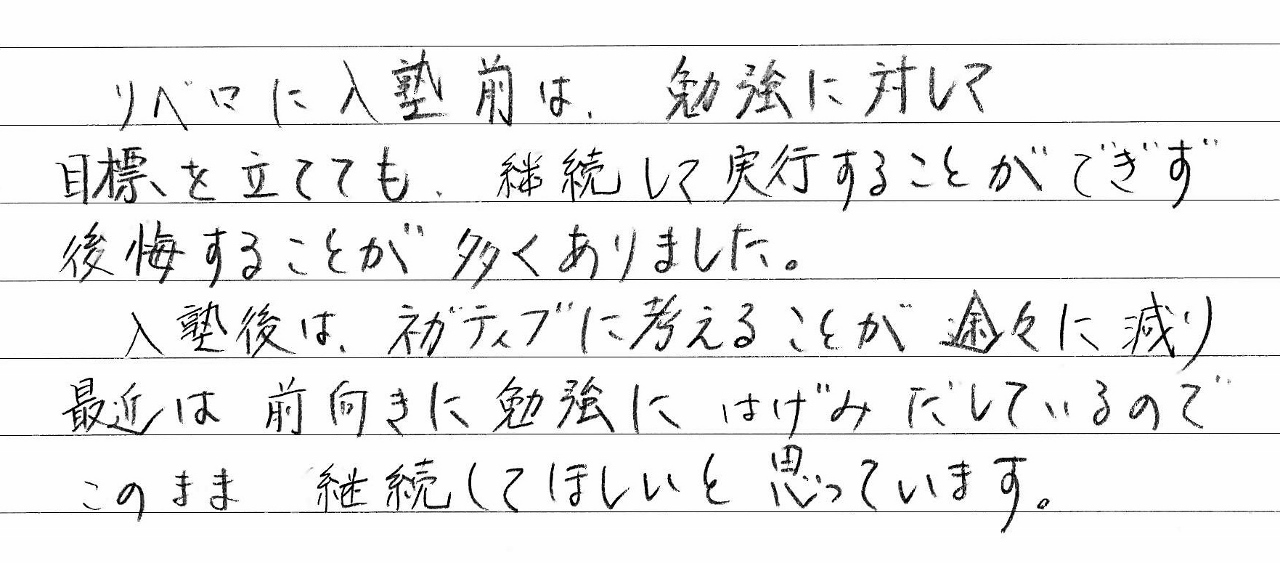 リベロに入塾前は、勉強に対して
目標を立てても、継続して実行することができず
後悔することが多くありました。
入塾後は、ネガティブに考えることが途々に減り
最近は前向きに勉強にはげみだしているので
このまま継続してほしいと思っています。